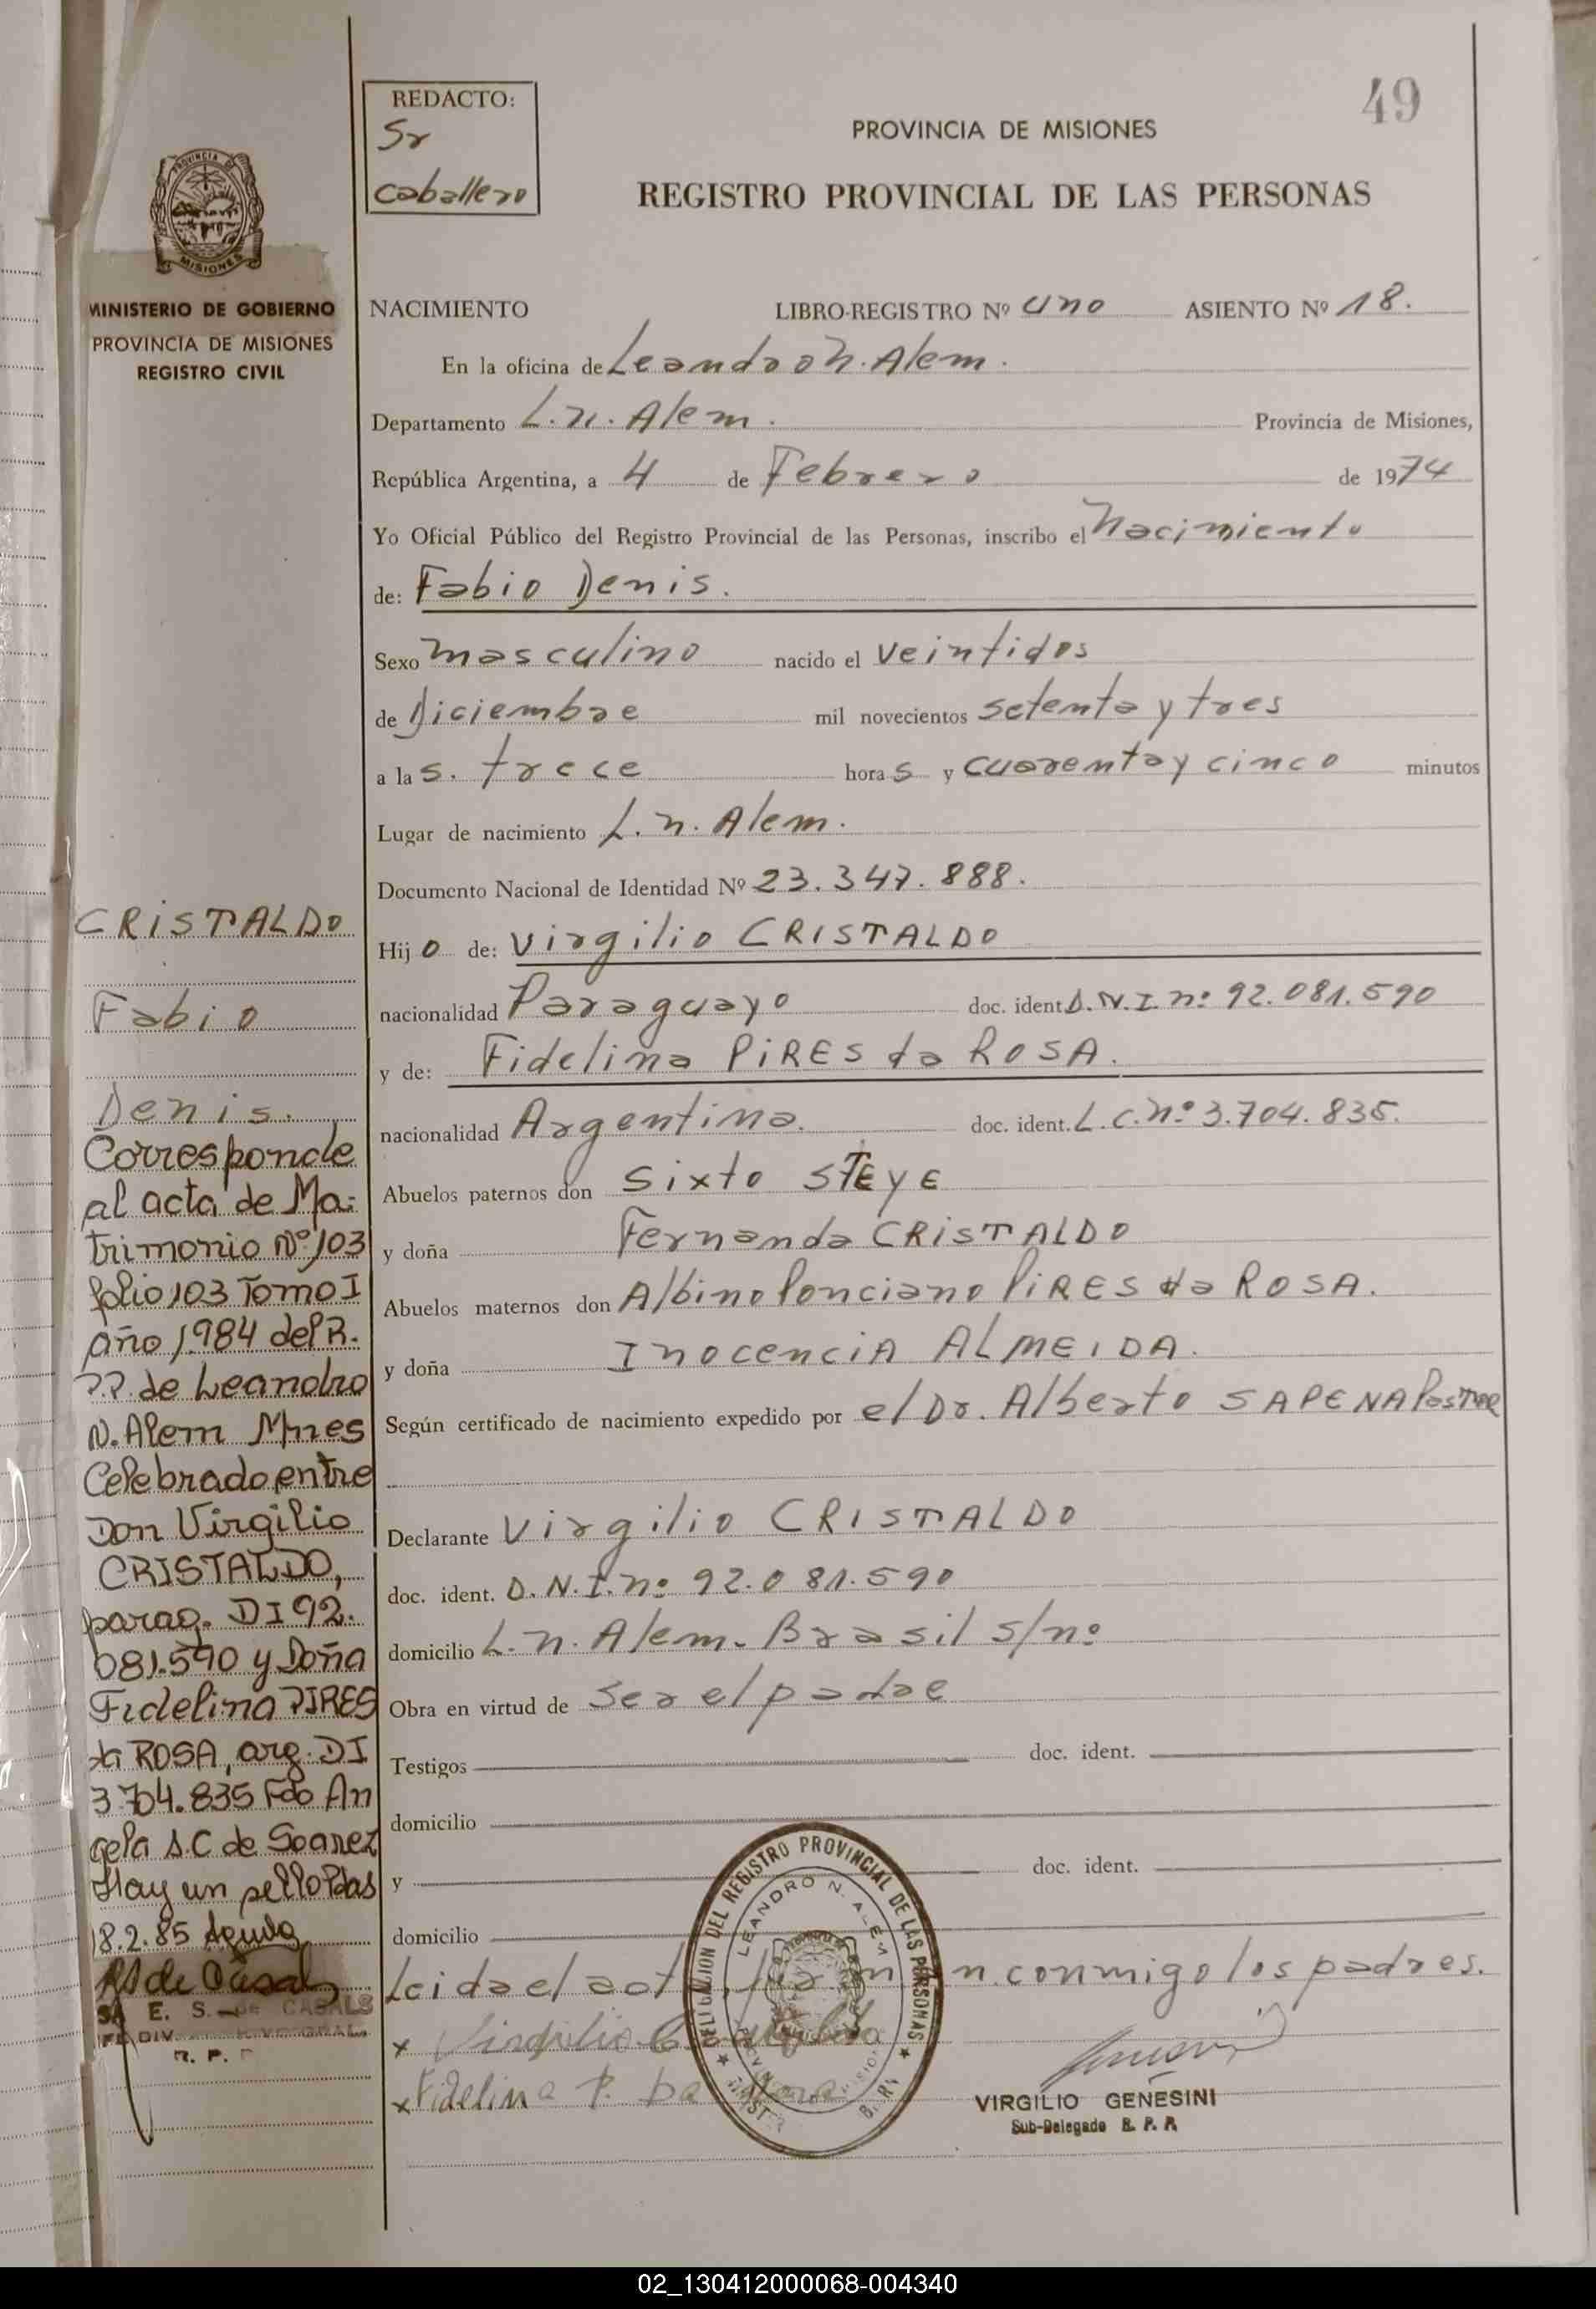 49
REDACTO:
Sr
Caballero
PROVINCIA DE MISIONES
REGISTRO PROVINCIAL DE LAS PERSONAS
PROVINCIA DE
MISIONES
MINISTERIO DE GOBIERNO
PROVINCIA DE MISIONES
REGISTRO CIVIL
NACIMIENTO LIBRO-REGISTRO Nº uno ASIENTO Nº 18.
En la oficina de Leandro N. Alem.
Departamento L.N. Alem. Provincia de Misiones,
República Argentina, a 4 de Febrero de 1974
Yo Oficial Público del Registro Provincial de las Personas, inscribo el Nacimiento
de: Fabio Denis.
Sexo masculino nacido el veintidos
de Diciembre mil novecientos setenta y tres
a las. trece horas y cuarenta y cinco minutos
Lugar de nacimiento L.N. Alem.
Documento Nacional de Identidad Nº 23.347.888.
Hijo de: Virgilio CRISTALDO
nacionalidad Paraguayo doc. ident. D.N.I. nº 92.081.590
y de: Fidelina PIRES da ROSA.
nacionalidad Argentina. doc. ident. L.C. nº 3.704.835.
Abuelos paternos don Sixto STEYE
y doña Fernanda CRISTALDO
Abuelos maternos don Albino Ponciano PIRES da ROSA.
y doña INOCENCIA ALMEIDA.
Según certificado de nacimiento expedido por el Dr. Alberto SAPENA
Declarante Virgilio CRISTALDO
doc. ident. D.N.I. nº 92.081.590
domicilio L.N. Alem. Brasil s/nº
Obra en virtud de ser el padre
Testigos doc. ident.
domicilio
y doc. ident.
domicilio
Leida el acta, firman conmigo los padres.
x Virgilio Cristaldo
x Fidelina P. Da Rosa
DELEGACION DEL REGISTRO PROVINCIAL DE LAS PERSONAS
LEANDRO N. ALEM
VIRGILIO GENESINI
Sub-Delegado R. P. P.
CRISTALDO
Fabio
Denis.
Corresponde
al acta de Ma-
trimonio Nº 103
folio 103 Tomo I
año 1984 del R.
P.P. de Leandro
N. Alem Mnes
Celebrado entre
Don Virgilio
CRISTALDO,
parag. DI 92.
081.590 y Doña
Fidelina PIRES
da ROSA, arg. DI
3.704.835 Fdo An
gela S.C de Soarez
Hay un sello Pdas
18.2.85
E. S. DE CASALS
R. P. P
02_130412000068-004340